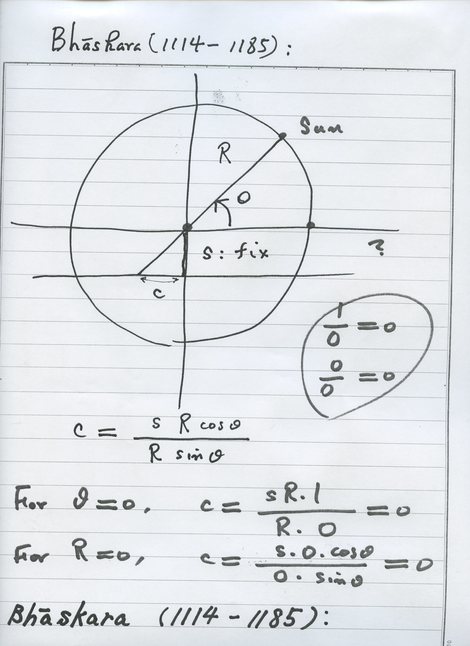 Bhāskara (1114 – 1185) :
Sun
R
θ
s : fix
?
c
1/0 = 0
0/0 = 0
c = s R cosθ / R sinθ
For θ = 0, c = sR.1 / R. 0 = 0
For R = 0, c = s.0.cosθ / 0. sinθ = 0
Bhāskara (1114 – 1185) :